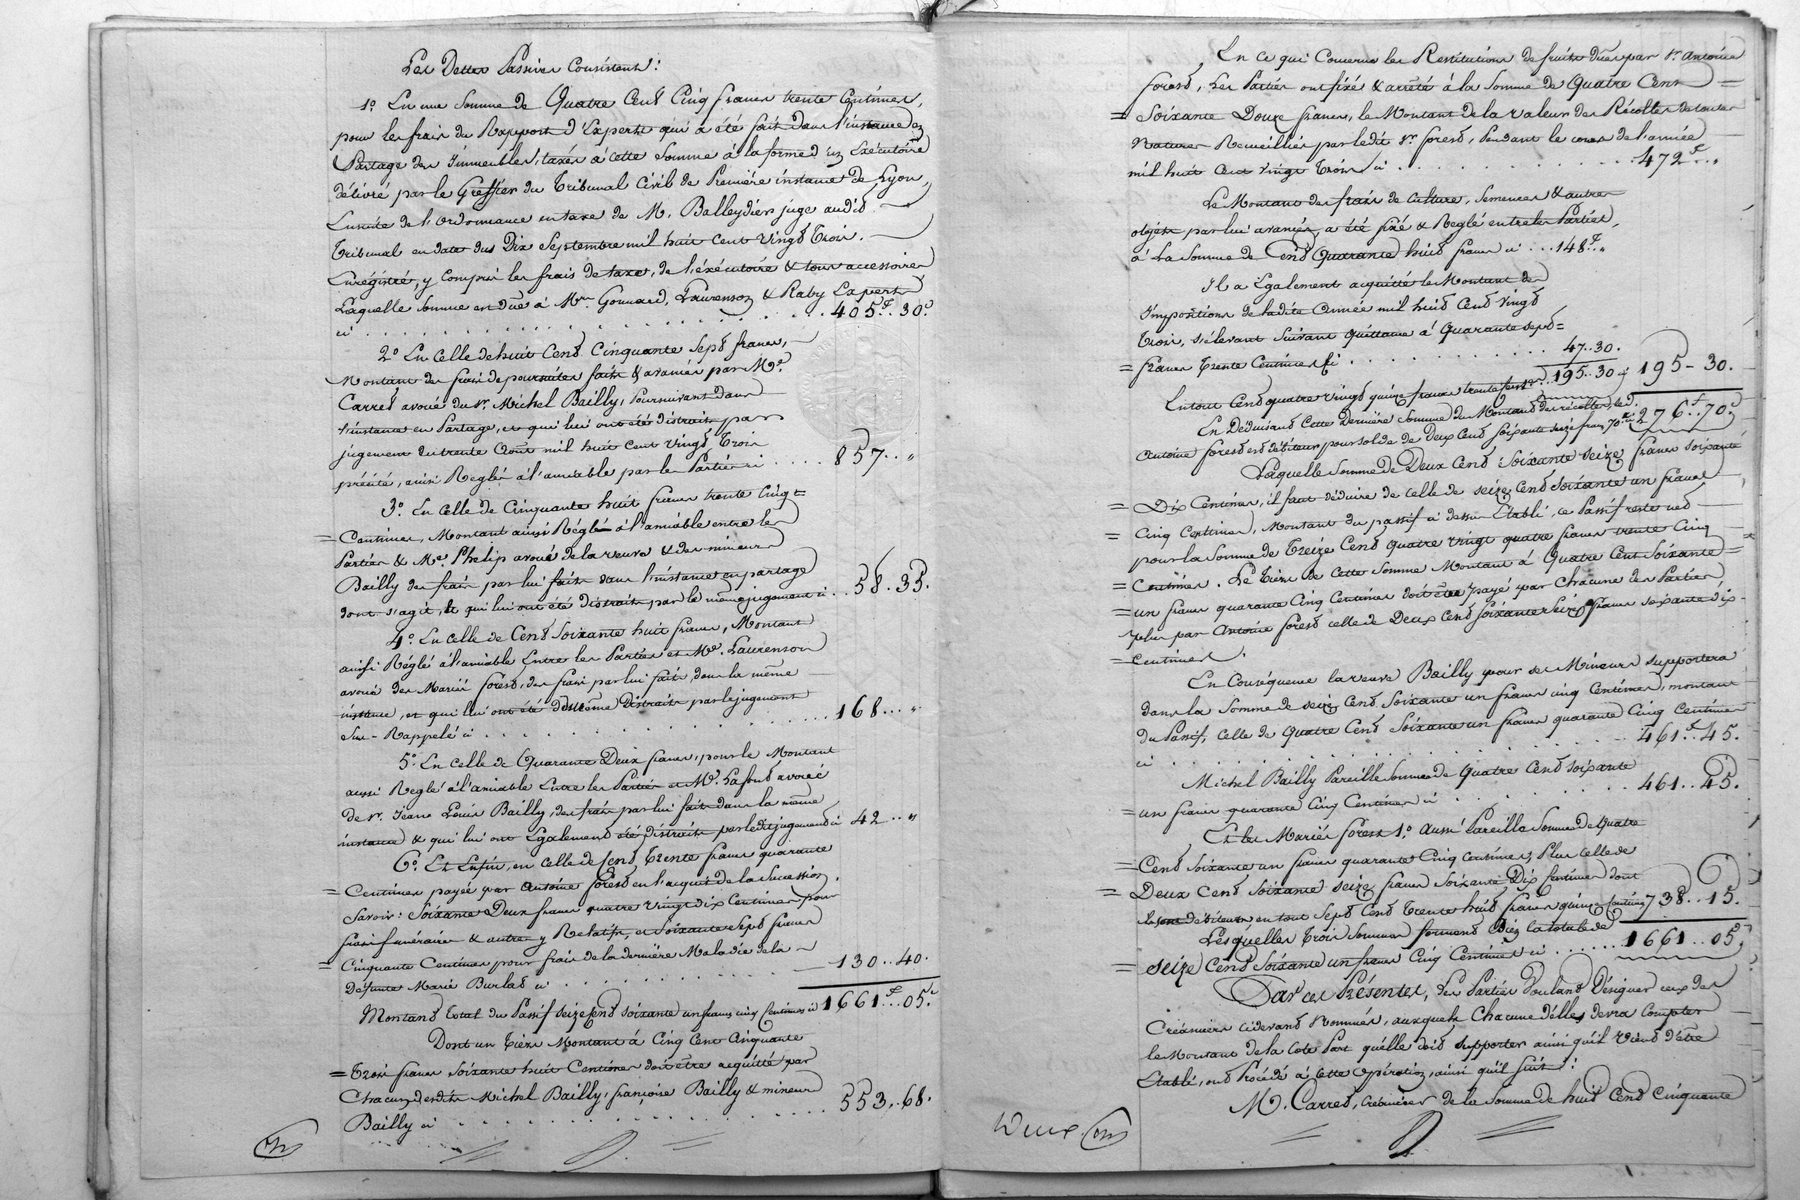 Les Dettes Passives Consistent :
1.º En une Somme de Quatre Cent Cinq francs trente Centimes,
pour les frais du Rapport d'Experts qui a été fait dans l'instance en
Partage des Immeubles, taxés à cette Somme à la forme d'un Exécutoire
délivré par le Greffier du Tribunal Civil de Première instance de Lyon,
Ensuite de l'Ordonnance en taxe de M. Balleydier juge audit
Tribunal en date du Dix Septembre mil huit cent vingt Trois.
Enrégistré, y compris les frais de taxe, de l'éxécutoire & tous accessoires
Laquelle Somme est düe à M.rs Gonnard, Laurenson & Raby Experts
ci . . . . . . . . . . . . 405.f 30.c
2.º En Celle de huit Cent Cinquante Sept francs,
Montant des frais de poursuites faits & avancés par M.e
Carret avoué du S.r Michel Bailly, Poursuivant dans
l'instance en Partage, et qui lui ont été distraits par
jugement du trente Août mil huit cent vingt Trois
précité, ainsi Reglés à l'amiable par les Parties ci . . . . 857. . „
3.º En Celle de Cinquante huit francs trente Cinq =
= Centimes, Montant ainsi Réglé à l'amiable entre les
Parties & M.e Phelip avoué de la veuve & des mineurs
Bailly des frais par lui faits dans l'instance en partage
dont s'agit, & qui lui ont été distraits par le même jugement ci . . 58. 35.
4.º En Celle de Cent Soixante huit francs, Montant
ainsi Réglé à l'amiable Entre les Parties et M.e Laurenson
avoué des Mariés forest, des frais par lui faits dans la même
instance, et qui lui ont été de même Distraits par le jugement
Sus-Rappelé ci . . . . . . . . . . 168 . . . „
5.º En Celle de Quarante Deux francs, pour le Montant
aussi Reglé à l'amiable Entre les Parties et M.e Lafont avoué
de S.r Jean Louis Bailly, des frais par lui faits dans la même
instance & qui lui ont Egalement été distraits par ledit jugement ci 42 . . „
6.º Et Enfin, en Celle de Cent Trente francs quarante
= Centimes payée par Antoine forest en l'acquit de la Succession,
Savoir : Soixante Deux francs quatre vingt dix Centimes pour
frais funéraires & autres y Relatifs, et Soixante Sept francs
= Cinquante Centimes pour frais de la dernière Maladie de la
Défunte Marie Burlat ci . . . . . . . 130. . 40.
Montant total du Passif Seize Cent Soixante un francs cinq Centimes ci 1661.f . 05.c
Dont un Tiers Montant à Cinq Cent Cinquante
= Trois francs Soixante huit Centimes doit être acquitté par
Chacun desdits Michel Bailly, françoise Bailly & mineurs
Bailly ci . . . . . . . . . . . 553. . 68.
En ce qui Concerne les Restitutions de fruits dües par S.r Antoine
forest, Les Parties ont fixé & arrêté à la Somme de Quatre Cent =
= Soixante Douze francs, le Montant de la valeur des Récoltes de toutes
Natures Recueillies par ledit S.r forest, Pendant le cours de l'année
mil huit Cent vingt Trois ci . . . . . . . . 472.f . „
Le Montant des frais de Culture, Semences & autres
objets par lui avancés, a été fixé & Reglé entre les Parties,
à La Somme de Cent Quarante huit francs ci . . . 148.f . „
Il a Egalement acquitté le Montant des
Impositions de ladite Année mil huit Cent vingt
Trois, s'élevant Suivant Quittance à Quarante Sept =
= francs Trente Centimes ci . . . . . . . . . 47. . 30.
En tout Cent quatre vingt quinze francs trente Cent. . . 195. . 30 195 - 30.
En Déduisant Cette Dernière Somme du Montant des récoltes, led.
Antoine forest est débiteur pour solde de Deux Cent Soixante Seize francs 70.c ci 276.f . 70.c
Laquelle Somme de Deux Cent Soixante Seize francs Soixante
= Dix Centimes, il faut déduire de celle de Seize Cent Soixante un francs
= Cinq Centimes, Montant du passif ci dessus Etabli, ce Passif reste net
pour la Somme de Treize Cent quatre vingt quatre francs trente Cinq
= Centimes. Le Tiers de Cette Somme Montant à Quatre Cent Soixante =
= un francs quarante Cinq Centimes doit être payé par Chacune des Parties,
plus par Antoine forest celle de Deux Cent Soixante Seize francs Soixante dix -
= Centimes.
En Conséquence la veuve Bailly pour ses Mineurs supportera
dans la Somme de Seize Cent Soixante un francs cinq Centimes, montant
du Passif, Celle de Quatre Cent Soixante un francs quarante Cinq Centimes
ci . . . . . . . . . . . . 461.f . 45.
Michel Bailly Pareille Somme de Quatre Cent Soixante
= un francs quarante Cinq Centimes ci . . . . . . . 461. . 45.
Et les Mariés forest 1.º aussi Pareille Somme de Quatre
= Cent Soixante un francs quarante Cinq Centimes, Plus Celle de
= Deux Cent Soixante Seize francs Soixante Dix Centimes dont
ils sont débiteurs en tout Sept Cent Trente huit francs quinze Centimes 738. . 15.
Lesquelles Trois Sommes forment Bien la totale de
= Seize Cent Soixante un francs Cinq Centimes ci . . . . . 1661. . 05.
Par ces Présentes, Les Parties Voulant Désigner ceux des
Créanciers cidevant Nommés, auxquels Chacune d'Elles devra Compter
le Montant de la Cote Part qu'elle doit supporter ainsi qu'il vient d'être
Etabli, ont Procédé à Cette Opération, ainsi qu'il Suit :
M. Carret, Créancier de la Somme de huit Cent Cinquante
Deux